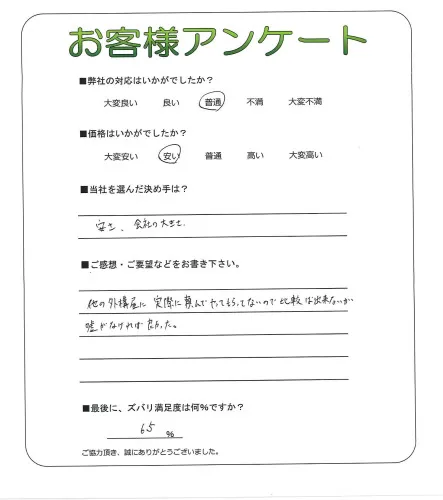 お客様アンケート
■弊社の対応はいかがでしたか?
大変良い 良い 普通 不満 大変不満
■価格はいかがでしたか?
大変安い 安い 普通 高い 大変高い
■当社を選んだ決め手は?
安さ、会社の大きさ.
■ご感想・ご要望などをお書き下さい。
他の外構屋に 実際に頼んでやってもらってないので 比較は出来ないが
嘘がなければ良かった。
■最後に、ズバリ満足度は何%ですか?
65 %
ご協力頂き、誠にありがとうございました。